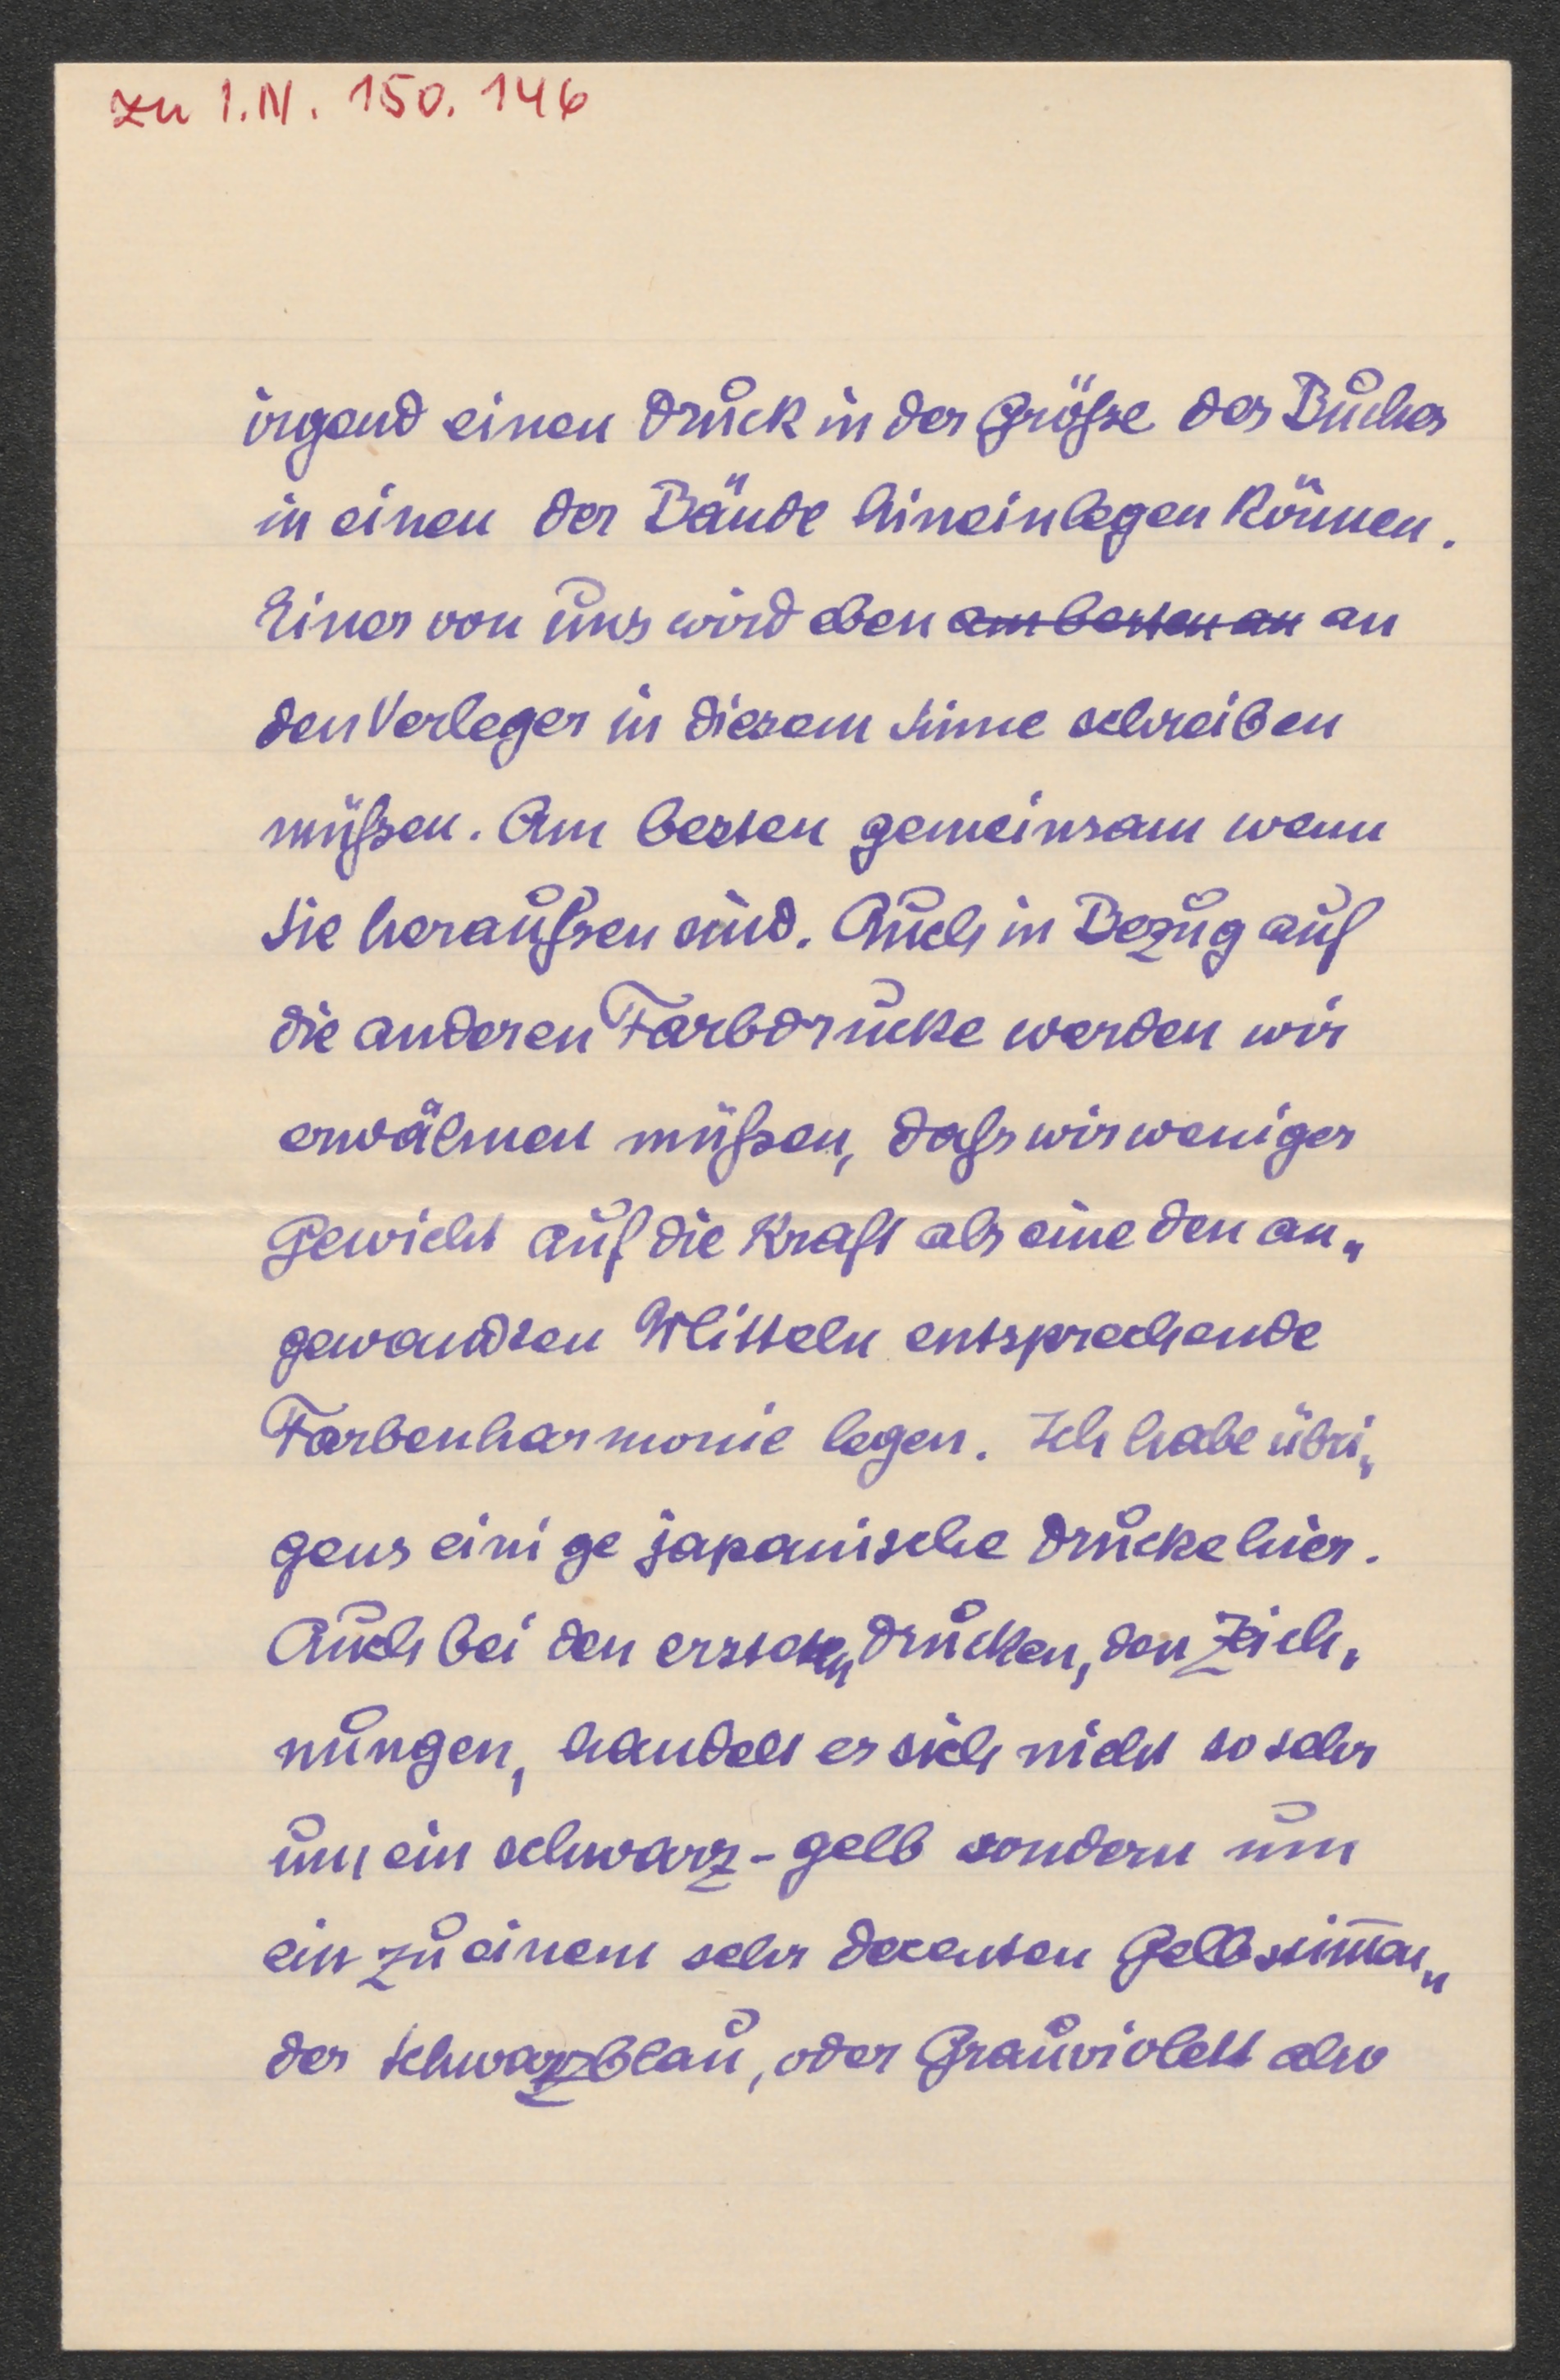 zu I.N. 150.146
irgend einen Druck in der Größe des Buches
in einen der Bände hineinlegen können.
Einer von uns wird eben am besten an an
den Verleger in diesem Sinne schreiben
müßen. Am besten gemeinsam wenn
Sie heraußen sind. Auch in Bezug auf
die anderen Farbdrucke werden wir
erwähnen müßen, daß wir weniger
Gewicht auf die Kraft als eine den an„
gewandten Mitteln entsprechende
Farbenharmonie legen. Ich habe übri„
gens einige japanische Drucke hier.
Auch bei den ersten Drucken, den Zeich„
nungen, handelt es sich nicht so sehr
um ein schwarz-gelb sondern um
ein zu einem sehr decenten Gelb stim̅en„
des Schwarzblau, oder Grauviolett also